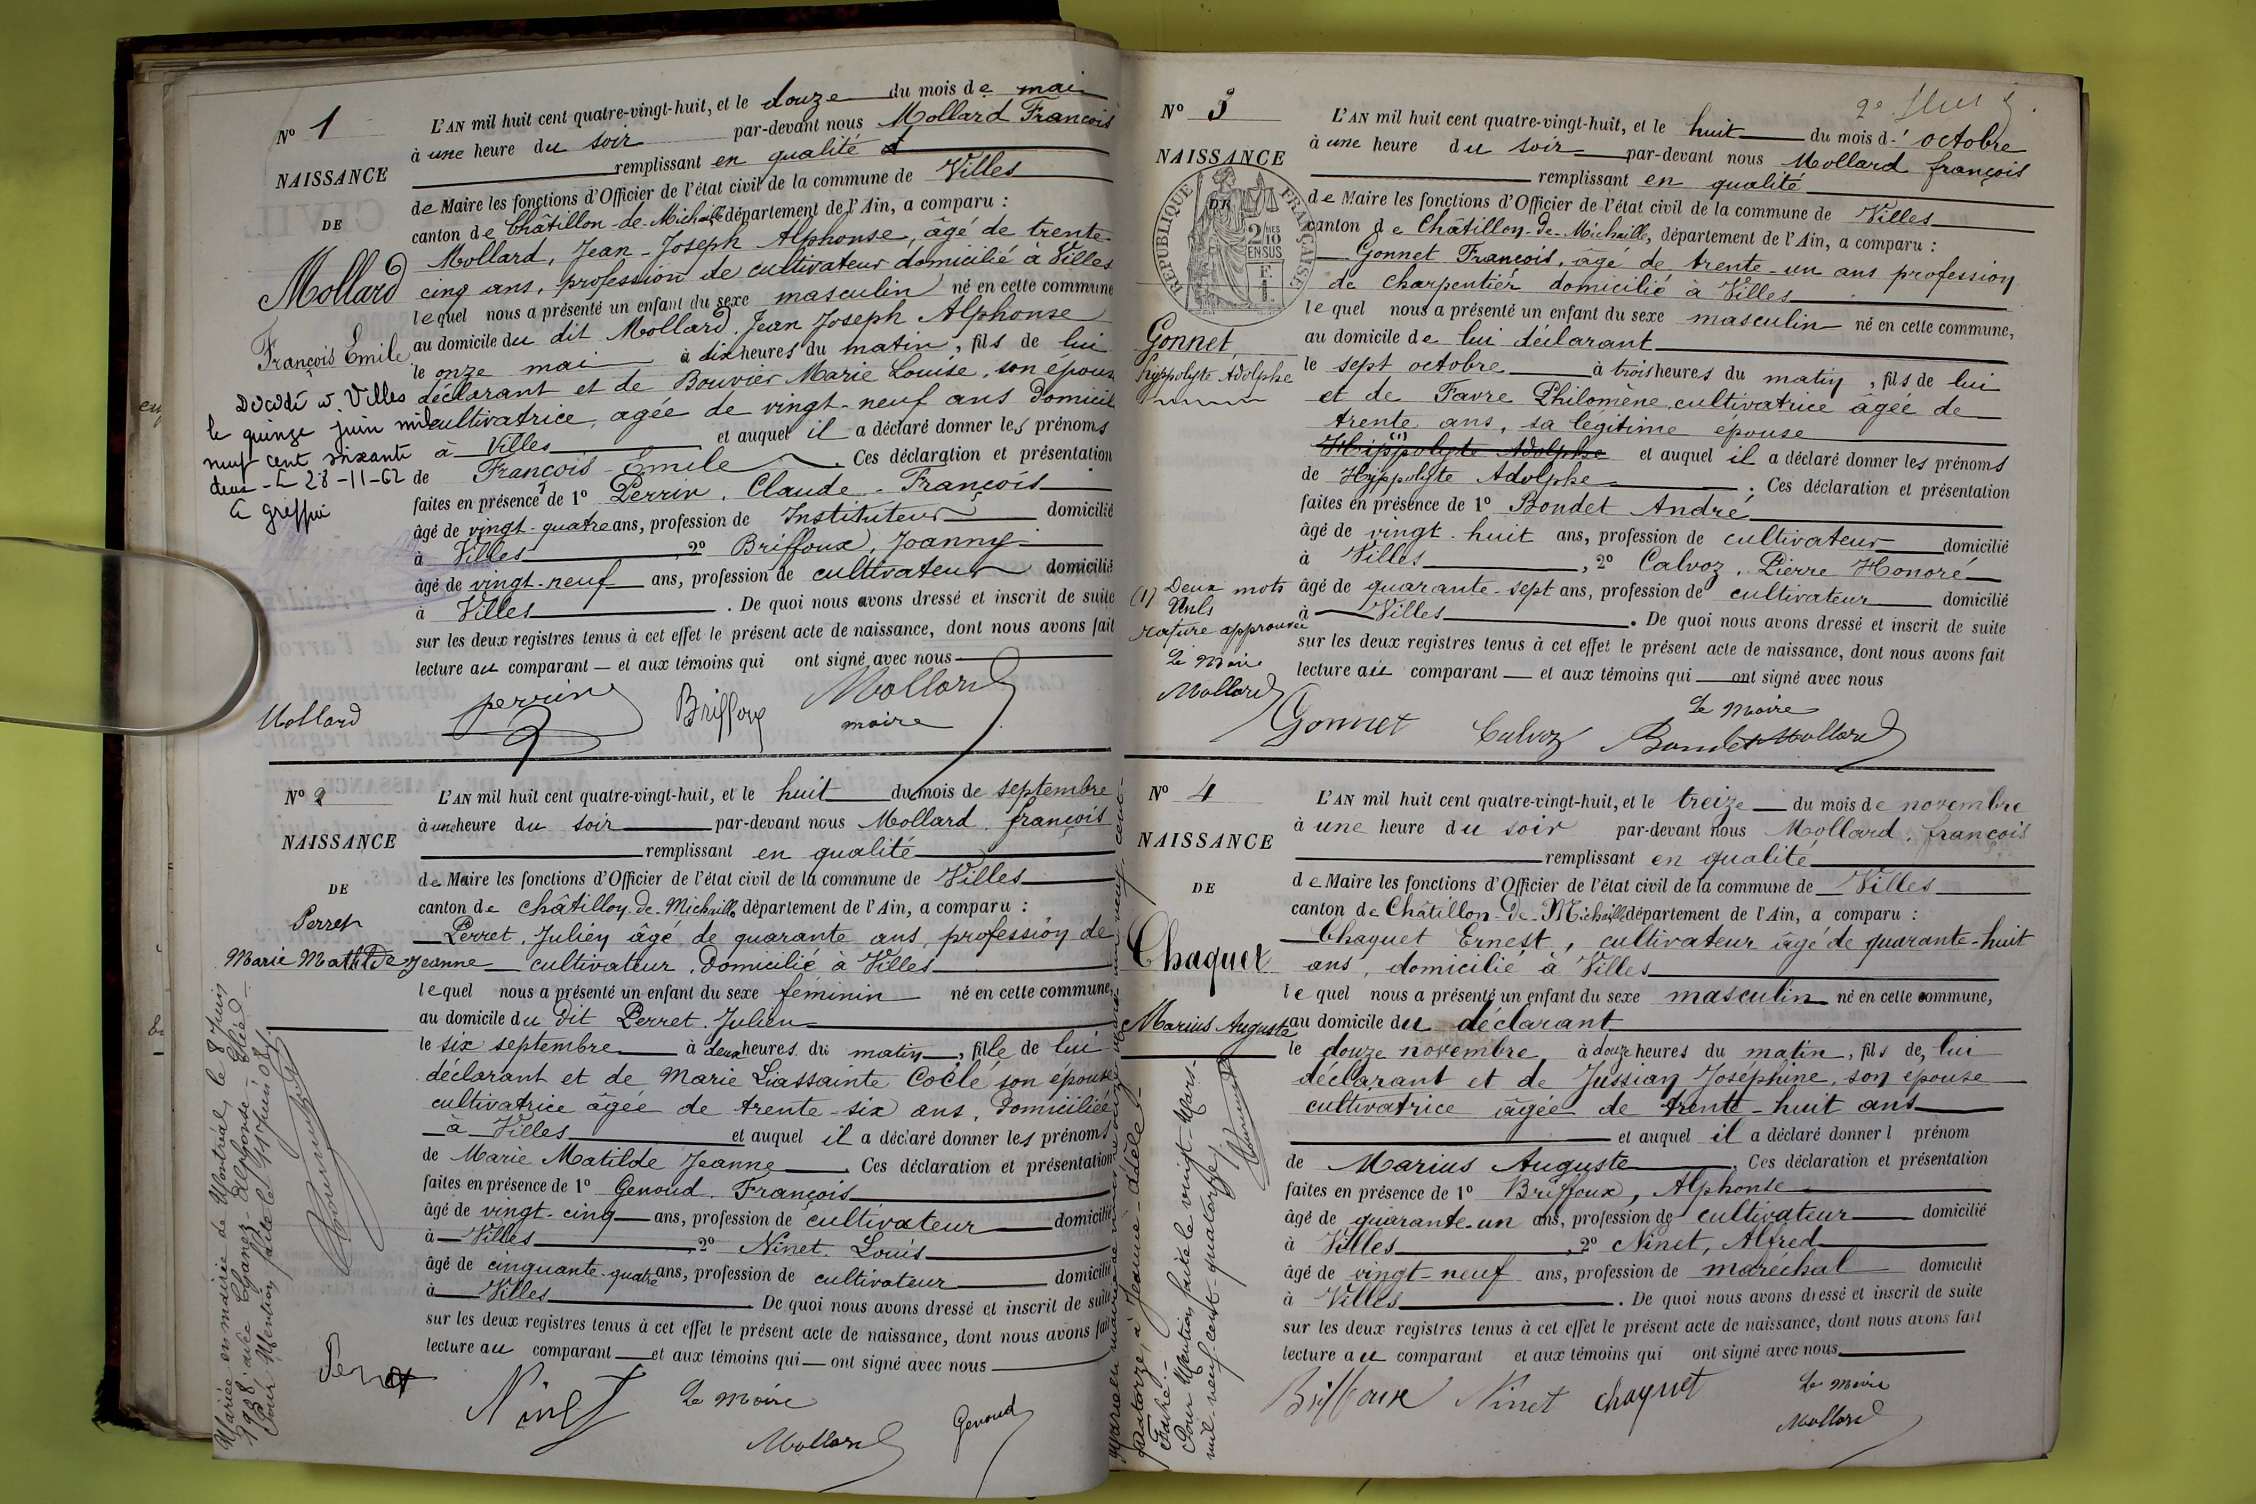 N° 1
NAISSANCE
DE
Mollard
François Emile
Décédé à Villes
le quinze juin mil
neuf cent soixante
deux - le 28-11-62
Le greffier
L'AN mil huit cent quatre-vingt-huit, et le douze du mois de mai
à une heure du soir par-devant nous Mollard François
remplissant en qualité
de Maire les fonctions d'Officier de l'état civil de la commune de Villes
canton de Châtillon-de-Michaille département de l'Ain, a comparu :
Mollard, Jean-Joseph Alphonse, âgé de trente-
cinq ans, profession de cultivateur domicilié à Villes
lequel nous a présenté un enfant du sexe masculin né en cette commune
au domicile du dit Mollard Jean Joseph Alphonse
le onze mai à dix heures du matin, fils de lui
déclarant et de Bouvier Marie Louise, son épouse
cultivatrice, agée de vingt-neuf ans domicil
à Villes et auquel il a déclaré donner les prénoms
de François-Émile. Ces déclaration et présentation
faites en présence de 1° Perrin, Claude-François
âgé de vingt-quatre ans, profession de Instituteur domicilié
à Villes, 2° Briffoux, Joanny
âgé de vingt-neuf ans, profession de cultivateur domicilié
à Villes. De quoi nous avons dressé et inscrit de suite
sur les deux registres tenus à cet effet le présent acte de naissance, dont nous avons fait
lecture au comparant et aux témoins qui ont signé avec nous
Mollard perrin Briffoux Mollard
maire
N° 2
NAISSANCE
DE
Perret
Marie Mathilde Jeanne
Mariée en mairie de Montréal, le 8 Juin
1908, avec Alphonse-Eliéd
Pour Mention faite le Juin 08.
L'AN mil huit cent quatre-vingt-huit, et le huit du mois de septembre
à une heure du soir par-devant nous Mollard, françois
remplissant en qualité
de Maire les fonctions d'Officier de l'état civil de la commune de Villes
canton de Châtillon-de-Michaille département de l'Ain, a comparu :
Perret, Julien âgé de quarante ans, profession de
cultivateur, domicilié à Villes
lequel nous a présenté un enfant du sexe féminin né en cette commune,
au domicile du dit Perret, Julien
le six septembre à deux heures du matin, fille de lui
déclarant et de Marie Liassainte Coclé son épouse
cultivatrice âgée de trente-six ans, domiciliée
à Villes et auquel il a déclaré donner les prénoms
de Marie Matilde Jeanne. Ces déclaration et présentation
faites en présence de 1° Genoud, François
âgé de vingt-cinq ans, profession de cultivateur domicilié
à Villes, 2° Ninet, Louis
âgé de cinquante-quatre ans, profession de cultivateur domicilié
à Villes. De quoi nous avons dressé et inscrit de suite
sur les deux registres tenus à cet effet le présent acte de naissance, dont nous avons fait
lecture au comparant et aux témoins qui ont signé avec nous
Perret Ninet Le Maire
Mollard Genoud
N° 3
NAISSANCE
DE
RÉPUBLIQUE FRANÇAISE
2/10 EN SUS
Gonnet
hyppolyte Adolphe
(1) Deux mots
Nuls
rature approuvée
Le Maire
Mollard
L'AN mil huit cent quatre-vingt-huit, et le huit du mois d' octobre
à une heure du soir par-devant nous Mollard françois
remplissant en qualité
de Maire les fonctions d'Officier de l'état civil de la commune de Villes
canton de Châtillon-de-Michaille, département de l'Ain, a comparu :
Gonnet François, âgé de trente-un ans profession
de charpentier domicilié à Villes
lequel nous a présenté un enfant du sexe masculin né en cette commune,
au domicile de lui déclarant
le sept octobre à trois heures du matin, fils de lui
et de Favre Philomène cultivatrice âgée de
trente ans, sa légitime épouse
(1) et auquel il a déclaré donner les prénoms
de Hyppolyte Adolphe. Ces déclaration et présentation
faites en présence de 1° Bondet André
âgé de vingt-huit ans, profession de cultivateur domicilié
à Villes, 2° Calvoz, Pierre Honoré
âgé de quarante-sept ans, profession de cultivateur domicilié
à Villes. De quoi nous avons dressé et inscrit de suite
sur les deux registres tenus à cet effet le présent acte de naissance, dont nous avons fait
lecture au comparant et aux témoins qui ont signé avec nous
Le Maire
Gonnet Calvoz Bondet Mollard
N° 4
NAISSANCE
DE
Chaquet
Marius Auguste
quatorze, à Jeanne-Adèle
Favre
Pour Mention faite le vingt-Mars-
mil-neuf-cent-quatorze
L'AN mil huit cent quatre-vingt-huit, et le treize du mois de novembre
à une heure du soir par-devant nous Mollard, françois
remplissant en qualité
de Maire les fonctions d'Officier de l'état civil de la commune de Villes
canton de Châtillon-de-Michaille département de l'Ain, a comparu :
Chaquet Ernest, cultivateur âgé de quarante-huit
ans, domicilié à Villes
lequel nous a présenté un enfant du sexe masculin né en cette commune,
au domicile du déclarant
le douze novembre à douze heures du matin, fils de lui
déclarant et de Jussian Joséphine, son epouse
cultivatrice âgée de trente-huit ans
et auquel il a déclaré donner l prénom
de Marius Auguste. Ces déclaration et présentation
faites en présence de 1° Briffoux, Alphonse
âgé de quarante-un ans, profession de cultivateur domicilié
à Villes, 2° Ninet, Alfred
âgé de vingt-neuf ans, profession de maréchal domicilié
à Villes. De quoi nous avons dressé et inscrit de suite
sur les deux registres tenus à cet effet le présent acte de naissance, dont nous avons fait
lecture au comparant et aux témoins qui ont signé avec nous
Briffoux Ninet Chaquet Le Maire
Mollard